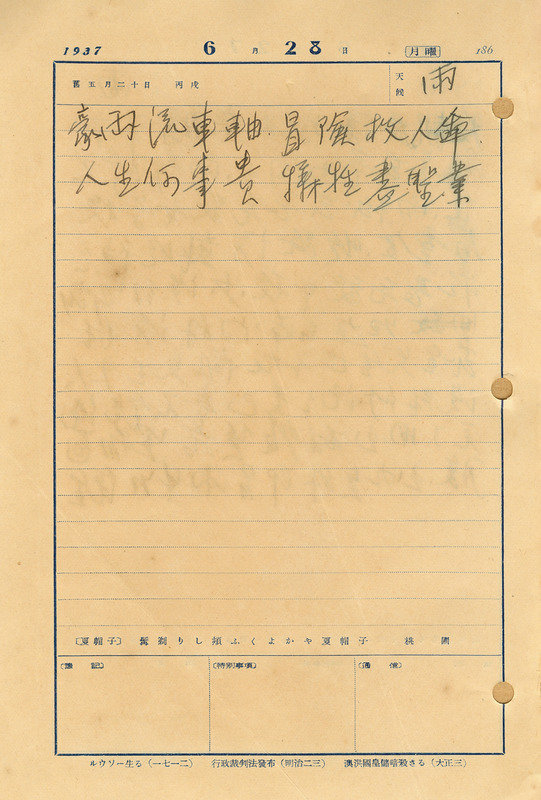 1937 6月28日 (月曜) 186
舊五月二十日 丙戌 天候 雨
豪雨流車軸. 冒險救人命.
人生何事貴 犠牲盡聖業
〔夏帽子〕 髯剃りし頬ふくよかや夏帽子 桃團
〔雜記〕 〔特別事項〕 〔通信〕
ルウソー生る(一七一二) 行政裁判法發布(明治二三) 澳洪國皇儲暗殺さる(大正三)